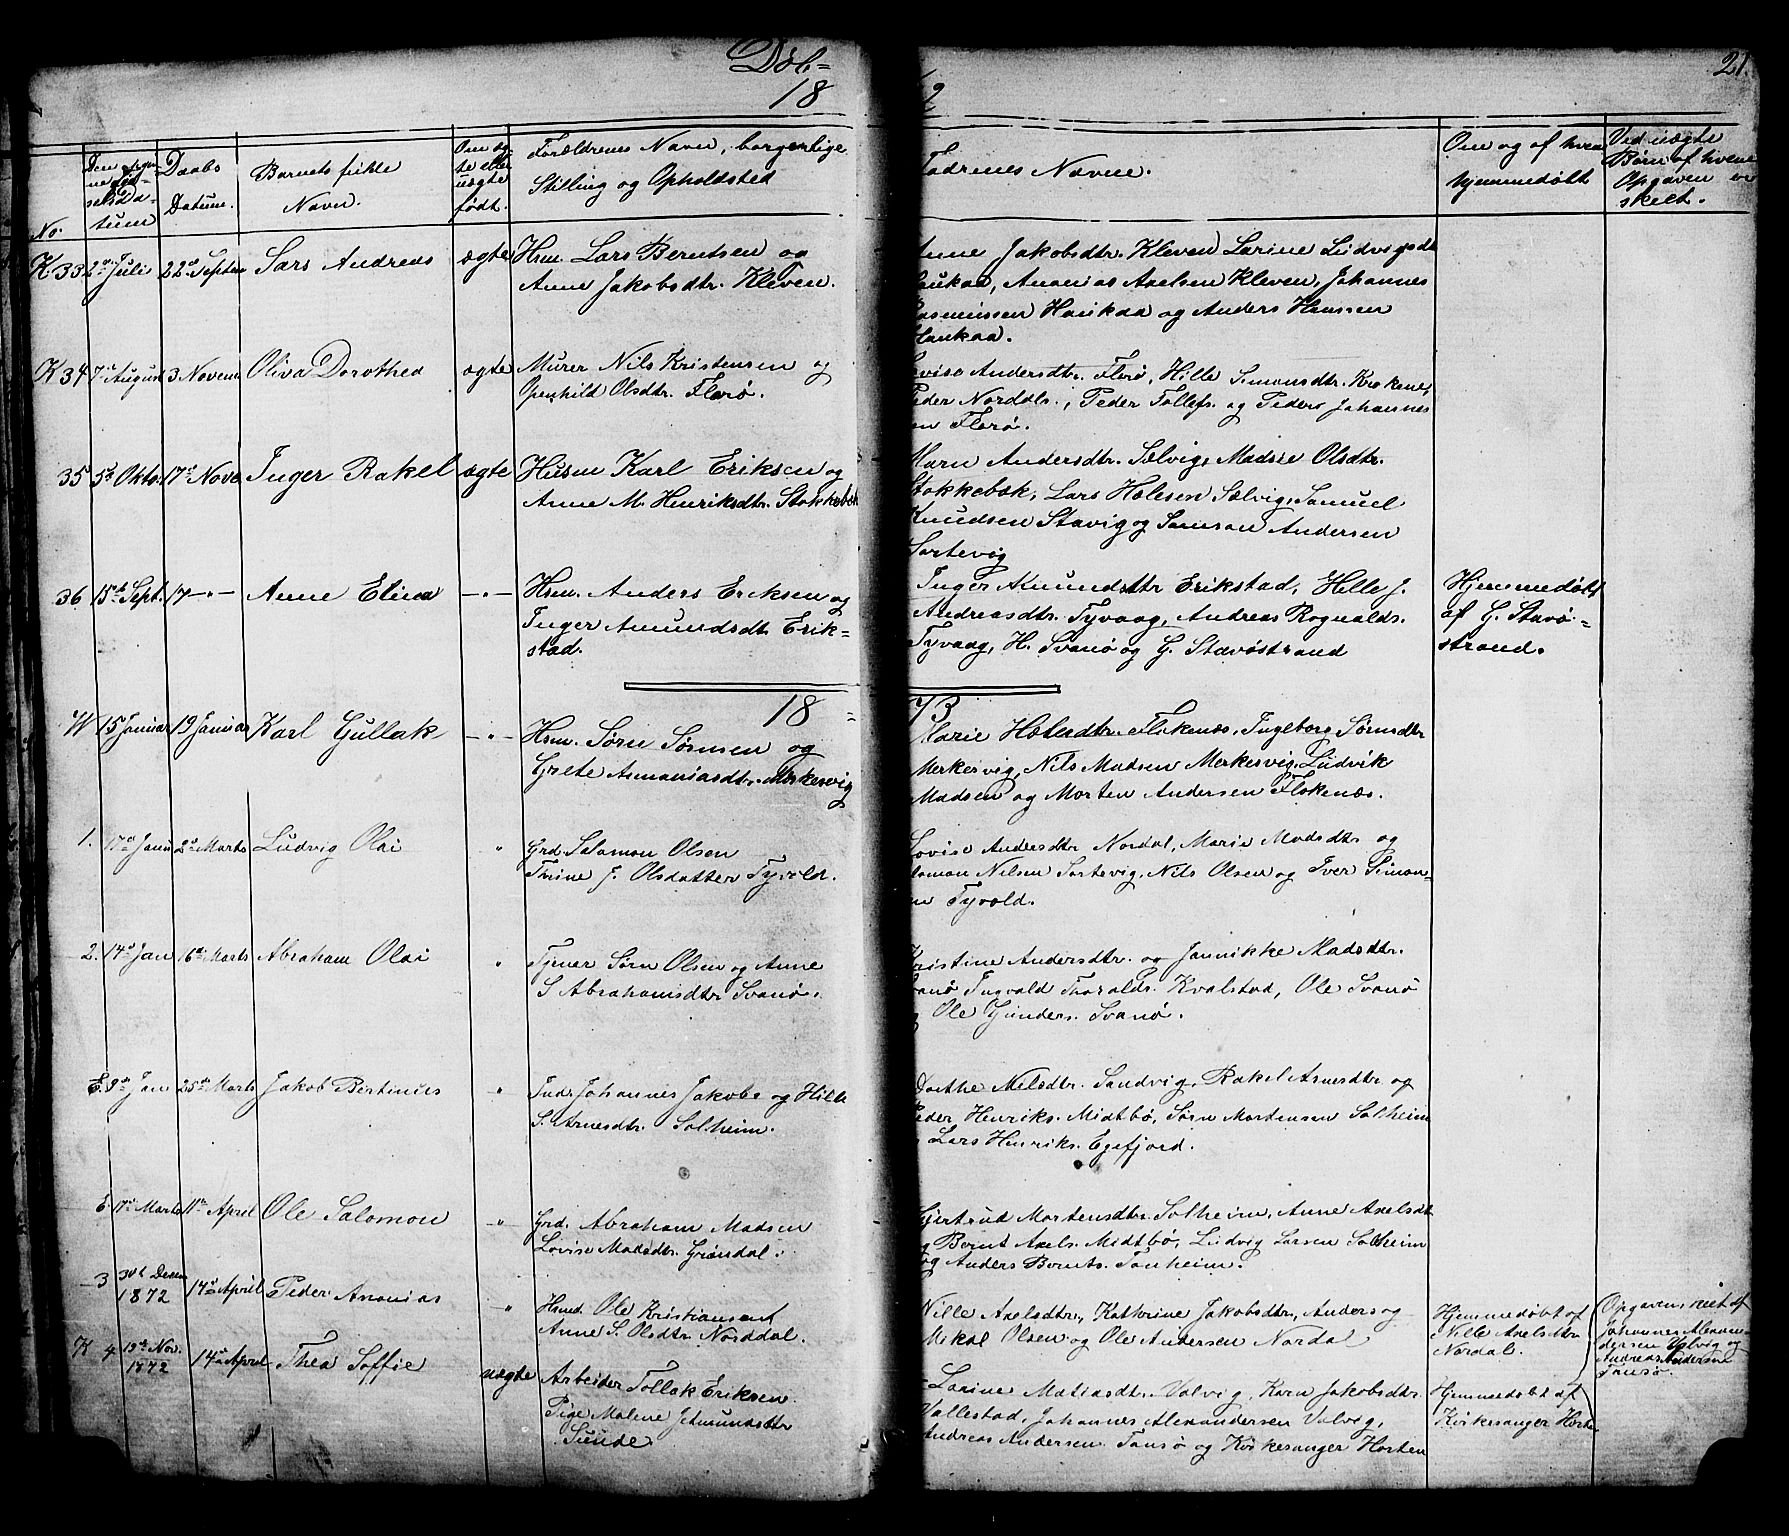 Døb=
18
2
21.
No.
Daabs
Datum.
Barnets fulde
Navn.
Om æg-
te eller
uægte
født.
Forældrenes Navn, borgerlige
Stilling og Opholdsted
Fadrenes Navne.
Om og af hvem
hjemmedøbt
Ved uægte
Børn af hvem
Opgaven er
skeet.
K. 33 2den Juli 22de Septem Lars Andreas ægte Hsm. Lars Berntsen og
Anne Jakobsdtr. Kleven.
Anne Jakobsdtr. Kleven, Larine Ludvigsdtr
Haukaa, Ananias Axelsen Kleven, Johannes
Rasmussen Haukaa og Anders Hanssen
Haukaa.
K 34 7de August 3 Novem Oliva Dorothea ægte Murer Nils Kristensen og
Openhild Olsdtr. Florø.
Lovise Andersdtr. Florø, Hille Simonsdtr. Krokene,
Peder Nordals., Peder Tollefs. og Peder Johannes
en Florø.
35 5te Oktb. 17de Nove Inger Rakel ægte Husm Karl Eriksen og
Anne M. Henriksdtr. Stokkebæk
Marn Andersdtr. Sælvig, Madsie Olsdtr.
Stokkebæk, Lars Helesen Sælvig, Samuel
Knudsen Stavig og Samson Andersen
Sortevig
36 15de Sept. 17 —"— Anne Elina —"— Hsm. Anders Eriksen og
Inger Amundsdtr Erik=
stad.
Inger Amundsdtr Erikstad, Hille J.
Andreasdtr. Tyvaag, Andreas Rognalds.
Tyvaag, H. Svanø og G. Stavøstrand
Hjemmedøbt
af G. Stavø=
strand.
18 = 73
15 Januar 19 Januar Karl Gullak —"— Hsm. Sørn Sørnsen og
Grete Ananiasdtr. Merkesvig
Marie Helesdtr. Flokenæs, Ingeborg Sørnsdtr
Merkesvig, Nils Madsen Merkesvig, Ludvik
Madsen og Morten Andersen Flokenæs.
1. 17de Janu 2de Marts Ludvig Olai " Grd. Salomon Olsen
Trine J. Olsdatter Tyvold.
Lovise Andersdtr Nordal, Marie Madsdtr og
Salomon Nilsen Sortevig, Nils Olsen og Iver Simon=
en Tyvold.
2. 14de Jan 16de Marts Abraham Olai " Tjener Sørn Olsen og Anne
S Abrahamsdtr Svanø.
Kristine Andersdtr. og Jannikke Madsdtr.
Svanø Ingvald Thoralds. Kvalstad, Ole Svanø
og Ole Gunders. Svanø.
E. 9de Jan 25de Marts Jakob Bertinus " Indr. Johannes Jakobs og Hille
S. Arnesdtr. Solheim.
Dorthe Nelsdtr. Sandvig, Rakel Arnesdtr og
Peder Henriks. Midtbø, Sørn Mortensen Solheim
Lars Henriks. Egefjord.
E. 17de Marts 11te April Ole Salomon " Grd. Abraham Madsen
Lovise Madsdtr. Grøndal.
Gjertrud Mortensdtr. Solheim, Anne Axelsdt
og Bernt Axels. Midtbø, Ludvig Larsen Solheim
og Anders Bernts. Tonheim.
3 30te Decem
1872 14de April Peder Ananias " Hsmd. Ole Kristiansen
Anne S. Olsdtr Norddal.
Nille Axelsdtr, Kathrine Jakobsdtr, Anders og
Mikal Olsen og Ole Andersen Nordal
Hjemmedøbt af
Nille Axelsdtr
Nordal.
K 4 19de Nov.
1872 14de April Thea Soffie uægte Arbeider Tollak Eriksen.
Pige Malene Amundsdtr
Sunde.
Larine Matiasdtr. Valvig, Karn Jakobsdtr.
Vallestad, Johannes Alexandersen Valvig,
Andreas Andersen Tansø og Kirkesanger Horten
Hjemmedøbt af
Kirkesanger Horten
Opgaven skeet af
Johannes Alexan=
dersen Valvig og
Andreas Andersen
Tansø.